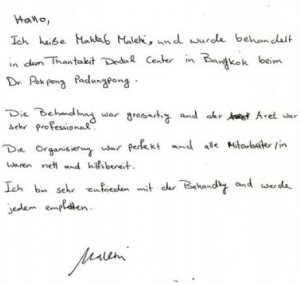 Hallo,
Ich heiße Mahtab Maleki, und wurde behandelt
in dem Thantakit Dental Center in Bangkok beim
Dr. Pokpong Padungpong.
Die Behandlung war großartig und der Arzt war
sehr professional.
Die Organisierung war perfekt and alle Mitarbeiter/in
waren nett and hilfsbereit.
Ich bin sehr zufrieden mit der Behandlung and werde
jedem empfehlen.
Maleki